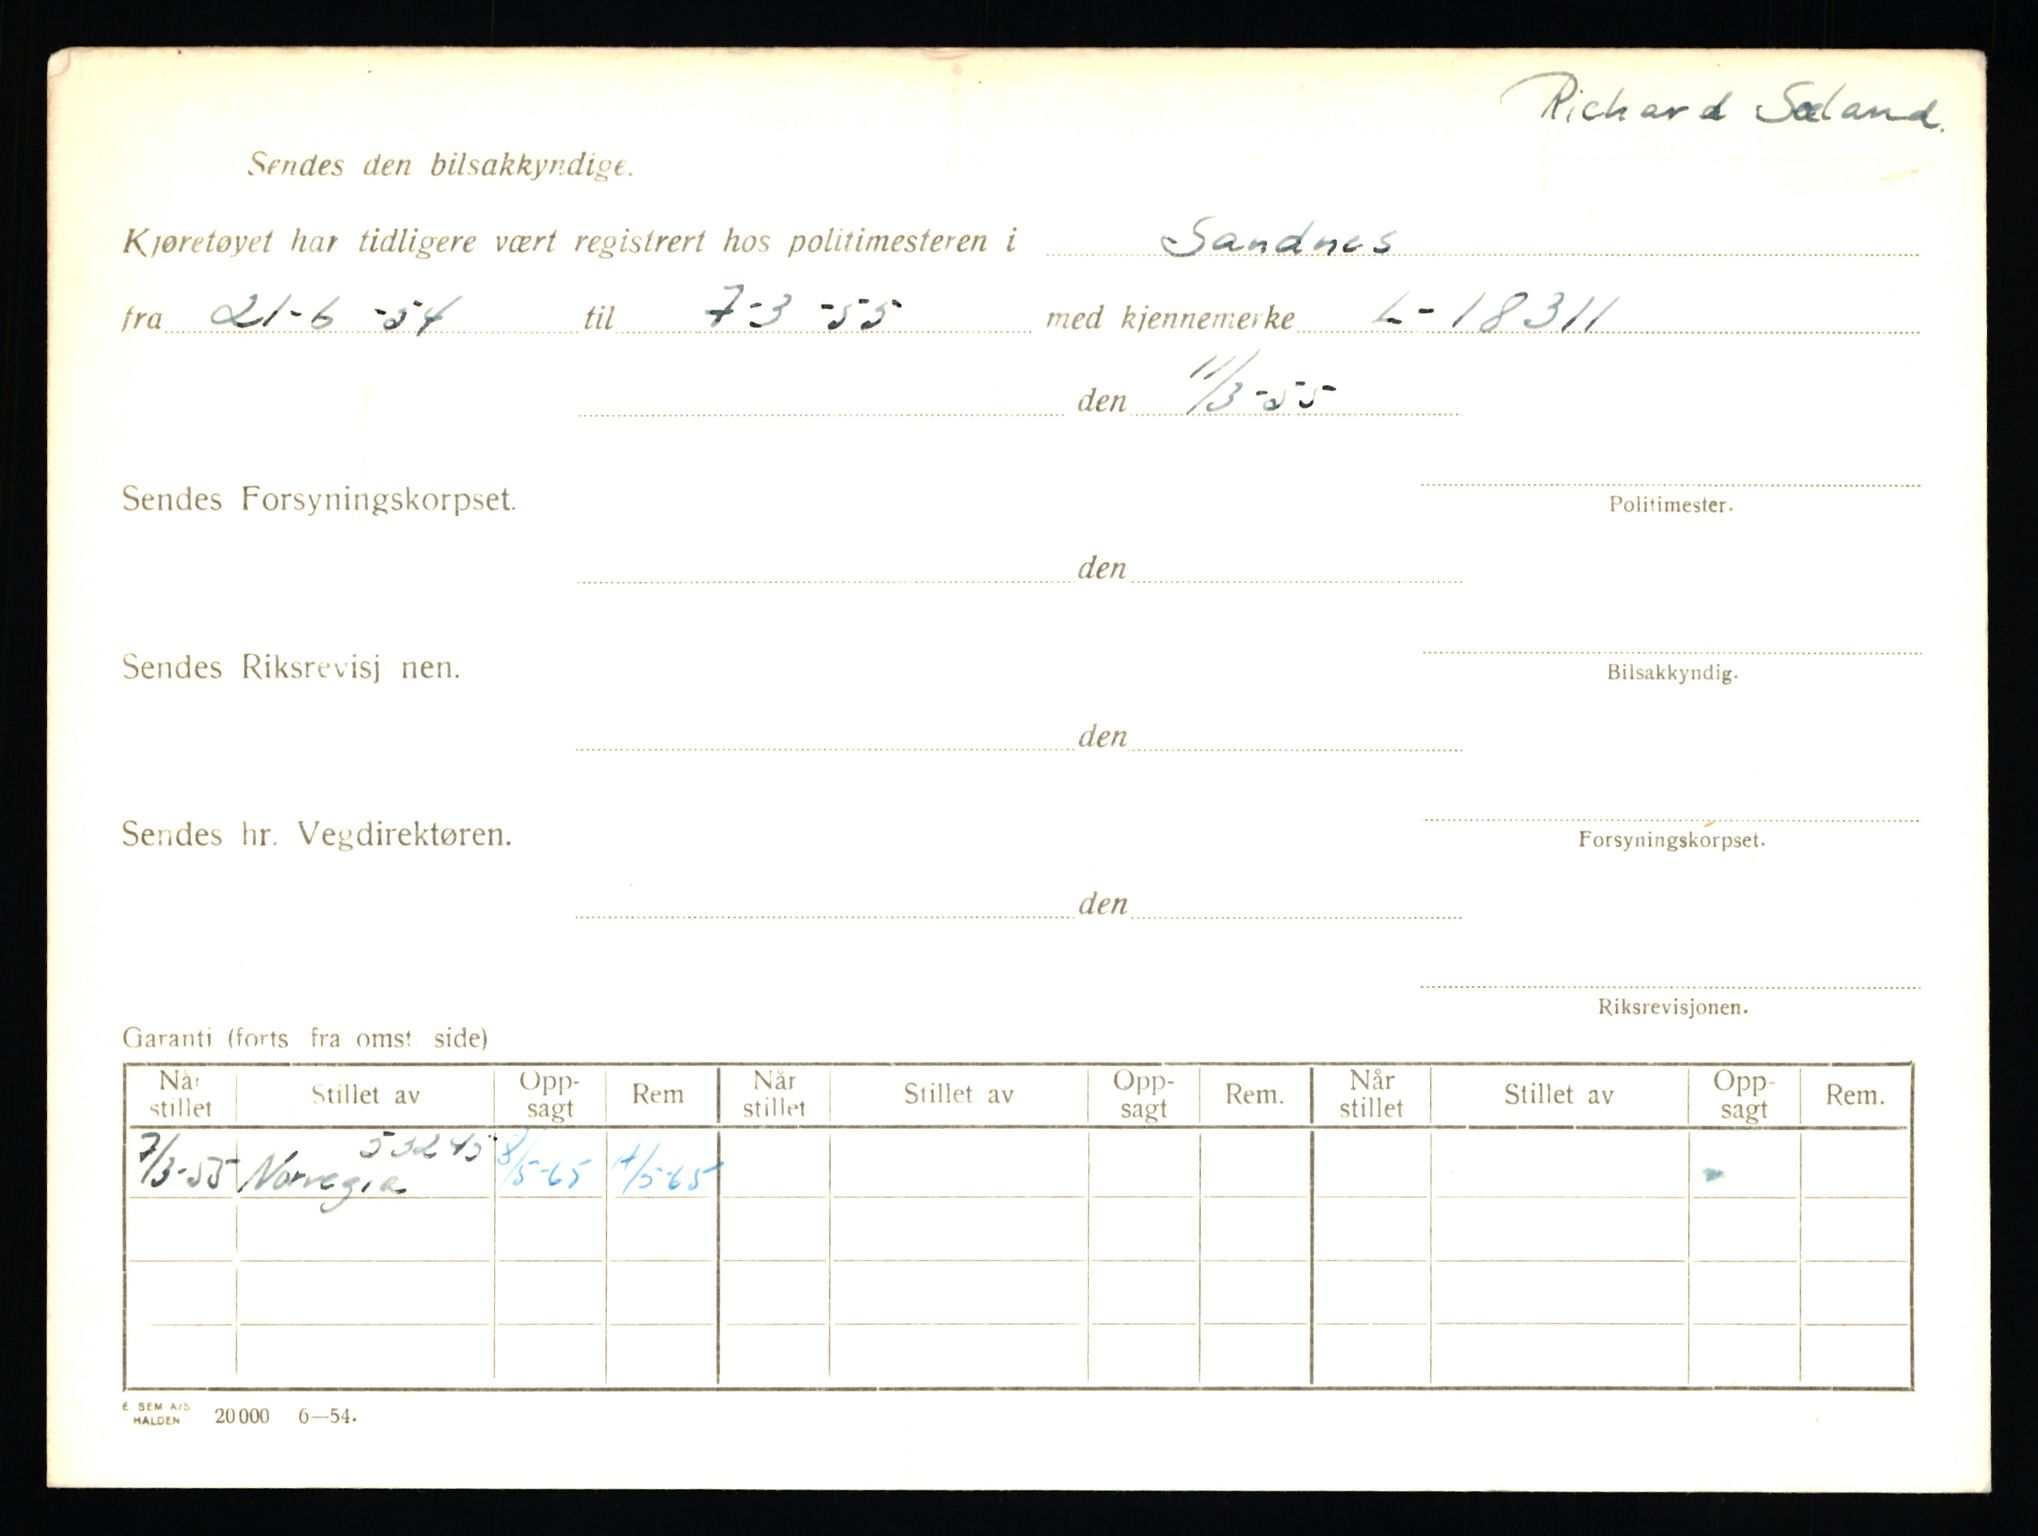 Richard Sæland.
Sendes den bilsakkyndige.
Kjøretøyet har tidligere vært registrert hos politimesteren i Sandnes
fra 21-6-54 til 7-3-55 med kjennemerke L-18311
den 11/3-55
Sendes Forsyningskorpset.
Politimester.
den
Sendes Riksrevisj nen.
Bilsakkyndig.
den
Sendes hr. Vegdirektøren.
Forsyningskorpset.
den
Riksrevisjonen.
Garanti (forts fra omst side)
Når stillet Stillet av Opp-sagt Rem Når stillet Stillet av Opp-sagt Rem. Når stillet Stillet av Opp-sagt Rem.
53245
7/3-55 Norvegia 8/5-65 14/5-65
E. SEM A/S
HALDEN 20000 6—54.